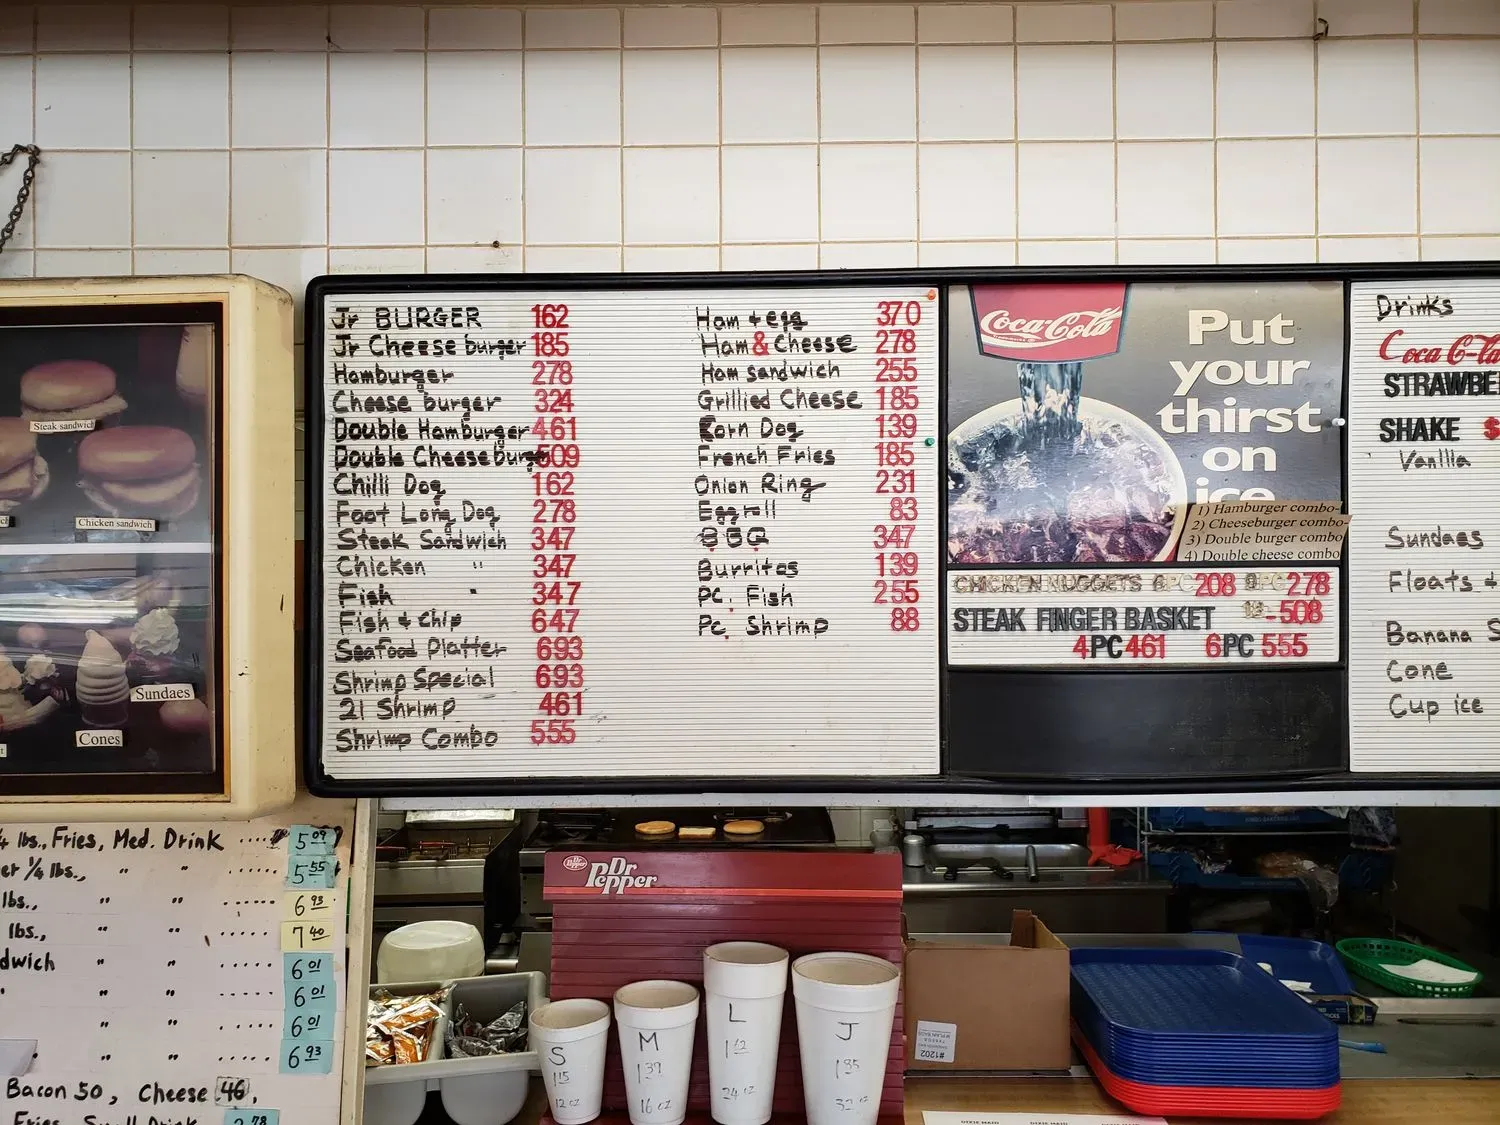 Jr BURGER 162
Jr Cheese burger 185
Hamburger 278
Cheese burger 324
Double Hamburger 461
Double Cheese burger 509
Chilli Dog 162
Foot Long Dog 278
Steak Sandwich 347
Chicken " 347
Fish " 347
Fish & Chip 647
Seafood Platter 693
Shrimp Special 693
21 Shrimp 461
Shrimp Combo 555
Ham + egg 370
Ham & Cheese 278
Ham sandwich 255
Grillied Cheese 185
Corn Dog 139
French Fries 185
Onion Ring 231
Eggroll 83
BBQ 347
Burritos 139
PC. Fish 255
Pc. Shrimp 88
Coca-Cola
Put
your
thirst
on
ice
1) Hamburger combo-
2) Cheeseburger combo-
3) Double burger combo
4) Double cheese combo
CHICKEN NUGGETS 6PC 208 9PC 278
STEAK FINGER BASKET - 508
4PC 461 6PC 555
Drinks
Coca Co-la
STRAWBE
SHAKE $
Vanilla
Sundaes
Floats +
Banana S
Cone
Cup ice
Steak sandwich
Chicken sandwich
Sundaes
Cones
1/4 lbs., Fries, Med. Drink ..... 5 09
er 1/4 lbs., " " ..... 5 55
lbs., " " ...... 6 93
lbs., " " ..... 7 40
dwich " " ..... 6 01
" " " ..... 6 01
" " ..... 6 01
" " ..... 6 93
Bacon 50, Cheese .46,
Fries, Small Drink 2.78
Dr Pepper
Dr
Pepper
S
1 15
12 oz
M
1 39
16 oz
L
1 62
24 oz
J
1 85
32 oz
#1202